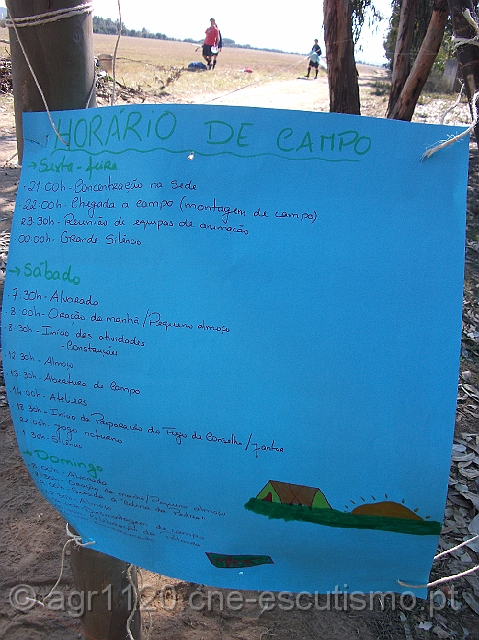 HORÁRIO DE CAMPO
→ Sexta-feira
- 21:00h - Concentração na Sede
- 22:00h - Chegada a campo (montagem de campo)
- 23:30h - Reunião de equipas de animação
- 00:00h - Grande Silêncio
→ Sábado
- 7:30h - Alvorada
- 8:00h - Oração da manhã / Pequeno almoço
- 8:30h - Início das atividades
- Construções
12:30h - Almoço
- Abertura de Campo
14:00h - Ateliers
18:30h - Início da Preparação do Fogo de Conselho / jantar
jogo noturno
Silêncio
→ Domingo
Alvorada
Oração da manhã / Pequeno almoço
Almoço
desmontagem de campo
© agr1120.cne-escutismo.pt